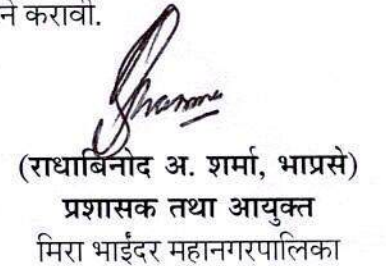 ने करावी.
Sharma
(राधाबिनोद अ. शर्मा, भाप्रसे)
प्रशासक तथा आयुक्त
मिरा भाईंदर महानगरपालिका